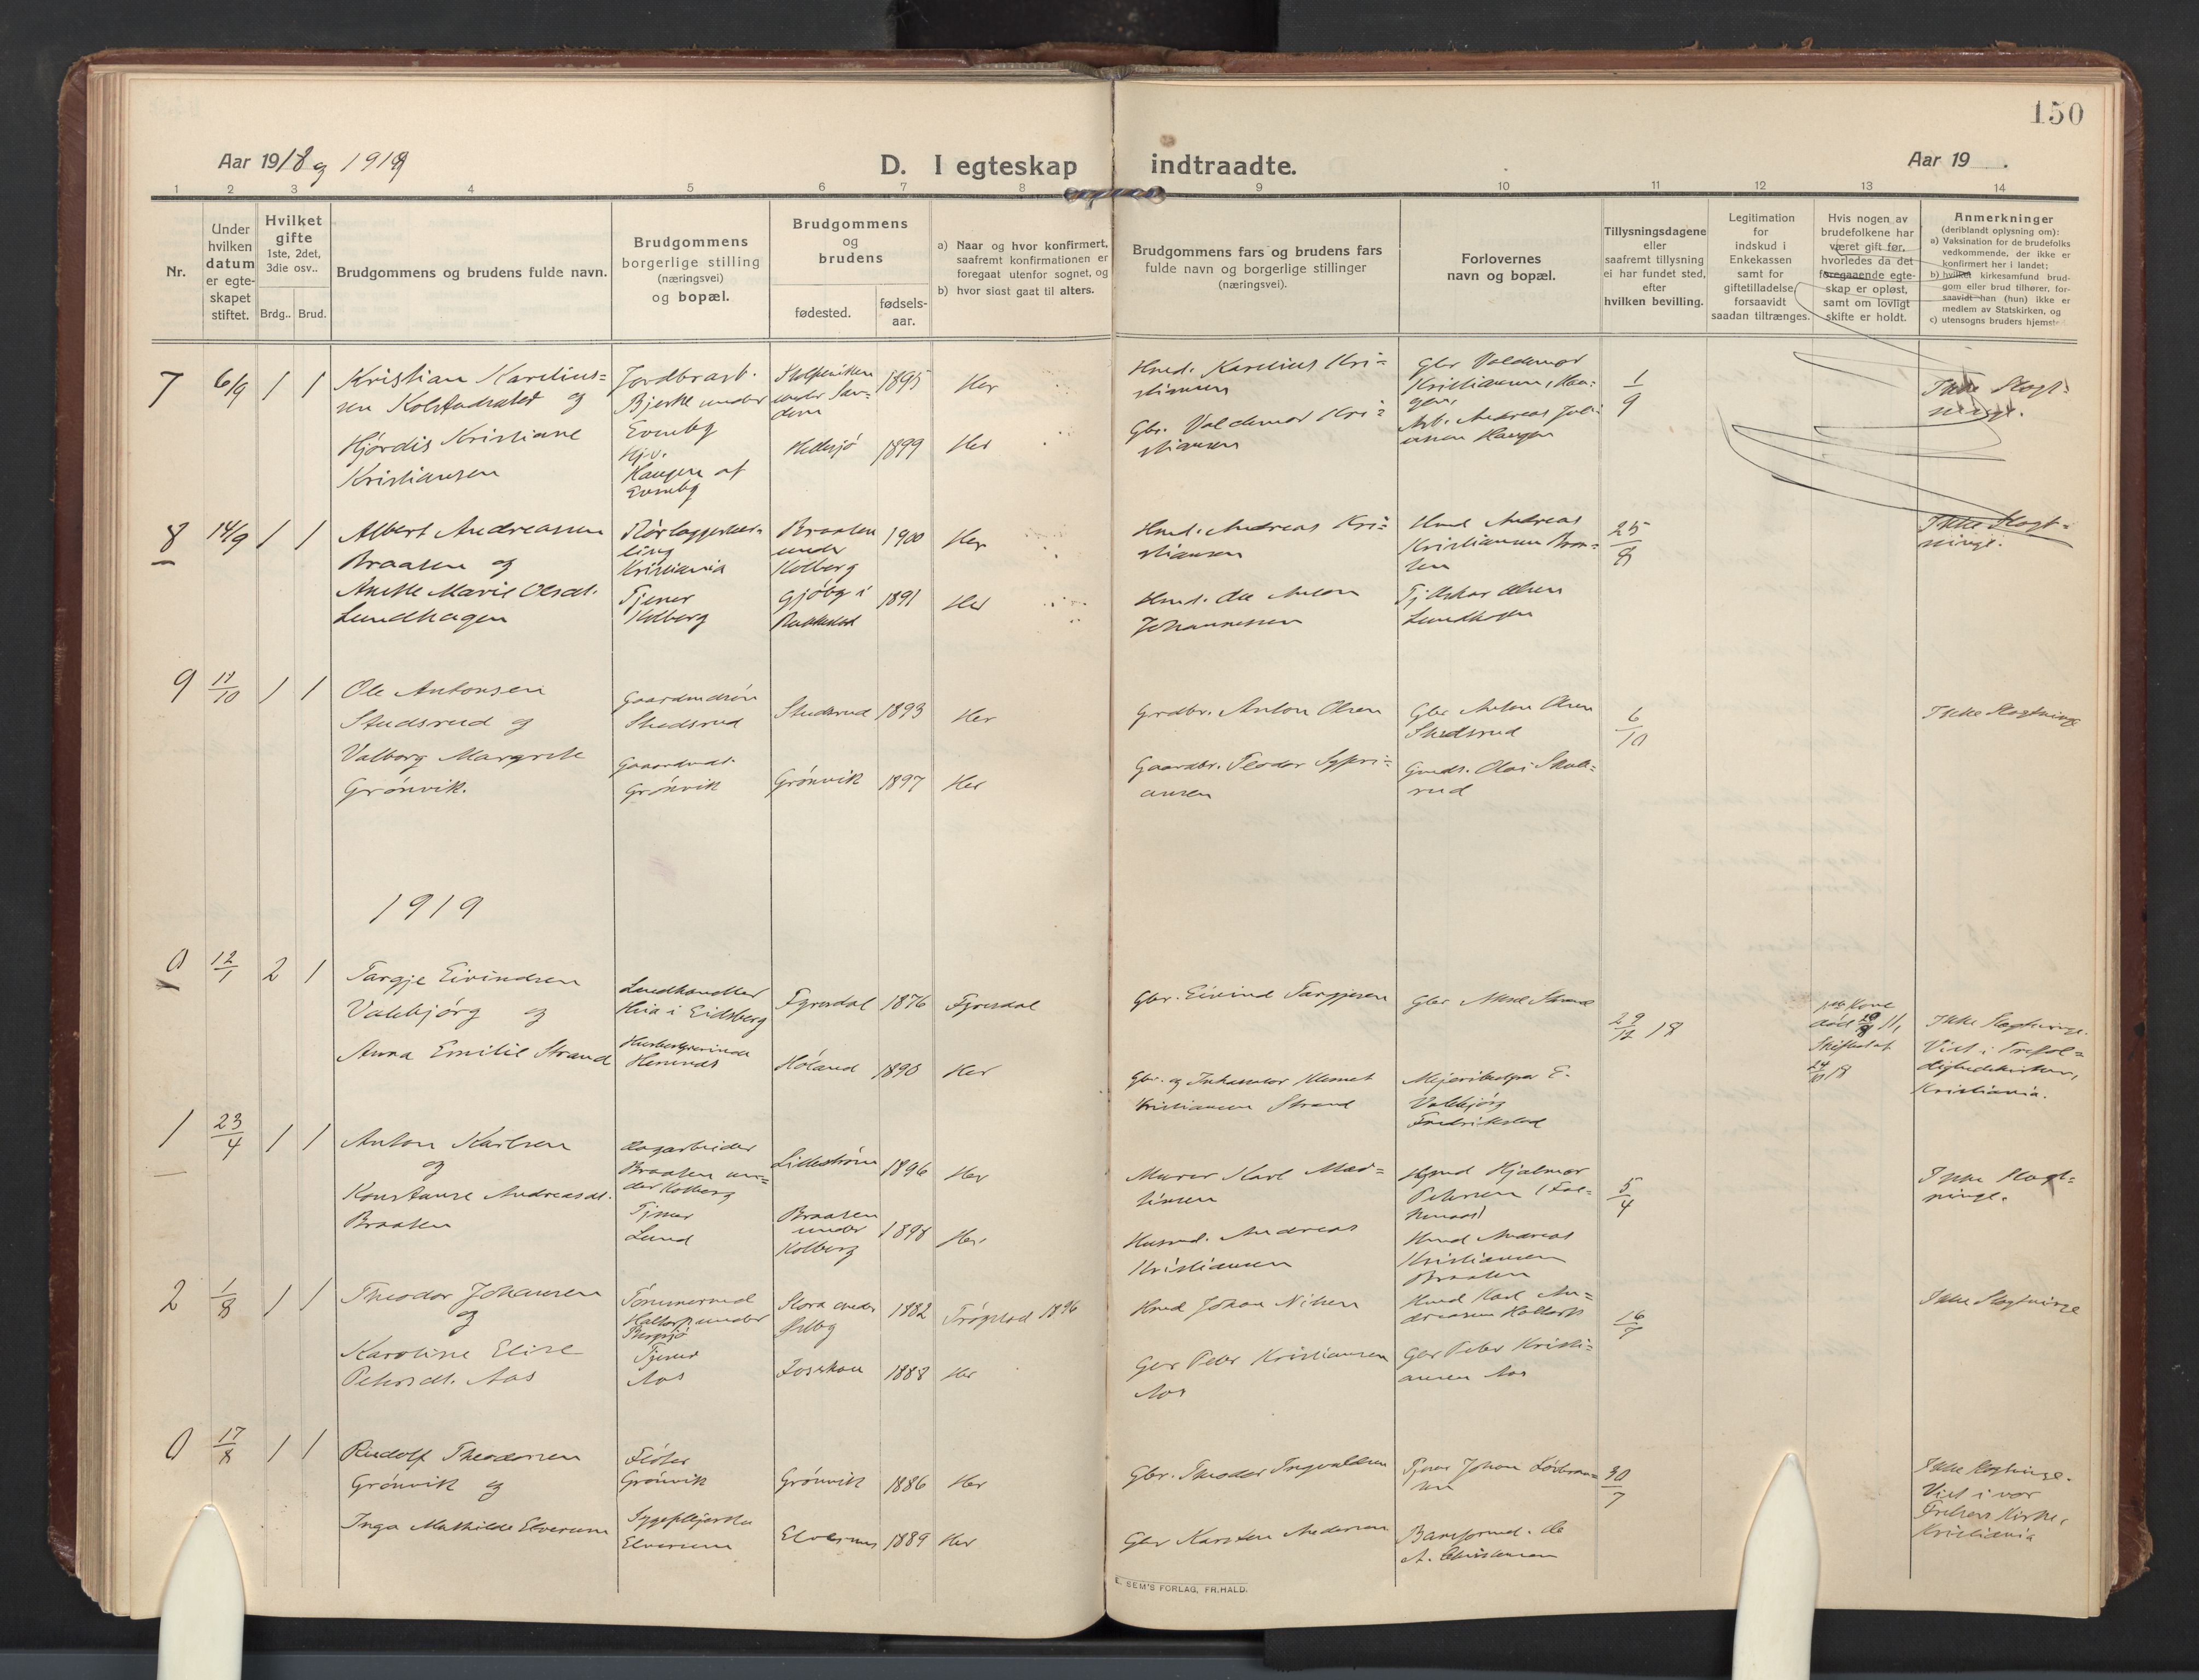 150
Aar 1918 og 1919
D. I egteskap indtraadte.
Aar 19 .
1 2 3 4 5 6 7 8 9 10 11 12 13 14
Nr.
Under
hvilken
datum
er egte-
skapet
stiftet.
Hvilket
gifte
1ste, 2det,
3die osv..
Brdg.. Brud.
Brudgommens og brudens fulde navn.
Brudgommens
borgerlige stilling
(næringsvei)
og bopæl.
Brudgommens
og
brudens
fødested.
fødsels-
aar.
a) Naar og hvor konfirmert,
saafremt konfirmationen er
foregaat utenfor sognet, og
b) hvor sidst gaat til alters.
Brudgommens fars og brudens fars
fulde navn og borgerlige stillinger
(næringsvei).
Forlovernes
navn og bopæl.
Tillysningsdagene
eller
saafremt tillysning
ei har fundet sted,
efter
hvilken bevilling.
Legitimation
for
indskud i
Enkekassen
samt for
giftetilladelse,
forsaavidt
saadan tiltrænges.
Hvis nogen av
brudefolkene har
været gift før,
hvorledes da det
foregaaende egte-
skap er opløst,
samt om lovligt
skifte er holdt.
Anmerkninger
(deriblandt oplysning om):
a) Vaksination for de brudefolks
vedkommende, der ikke er
konfirmert her i landet;
b) hvilket kirkesamfund brud-
gom eller brud tilhører, for-
saavidt han (hun) ikke er
medlem av Statskirken, og
c) utensogns bruders hjemsted
7
6/9
1
1
Kristian Karelius=
sen Kolstadradet og
Hjørdis Kristiane
Kristiansen
Jordbrarb.
Bjerke under
Evenby
Hjv.
Haugen af
Evenby
1895
1899
Her
Her
Hmd. Karelius Kri=
stiansen
Gbr. Valdemar Kri=
stiansen
Gbr Valdemar
Kristiansen, Hau=
gen,
Arb. Andreas
Haugen
1/9
Ikke Slegt=
ninge.
8
14/9
1
1
Albert Andreassen
Braaten og
Anette Marie Olsdt.
Lundhagen
Rørlæggerlær=
ling
Kristiania
Tjener
Kolberg
Braaten
under
Kolberg
1900
1891
Her
Her
Hmd. Andreas Kri=
stiansen
Hmd. Ole Anton
Johannessen
Hmd Andreas
Kristiansen Braa=
ten
Tj Oskar Olsen
Lundhagen
25/8
Ikke Slegt=
ninge.
9
11/10
1
1
Ole Antonsen
Studsrud og
Valborg Margrete
Grønvik.
Gaardmdsøn
Studsrud
Gaardmdt.
Grønvik
Studsrud
Grønvik
1893
1897
Her
Her
Grdbr. Anton Olsen
Gaardbr. Teodor Sypri=
ansen
Gbr Anton Olsen
Studsrud
Gmds. Olaf Skule=
rud
6/10
Ikke Slegtninge
1919
0
12/1
2
1
Targje Eivindsen
Valebjørg og
Anna Emilie Strand
Landhandler
Hiia i Eidsberg
Hemnes
Fyresdal
Høland
1876
1890
Fyresdal
Her
Gbr. Eivind Targjesen
Gbr. og Inkassator Klemet
Kristiansen Strand
Gbr Strand
Meieribestyrer E.
Valebjørg
Fredrikstad
29/12 18
Kone
død
Ikke Slegtninge.
Viet i Trefol=
dighedskirken,
Kristiania.
1
23/4
1
1
Anton Karlsen
og
Konstanse Andreasdt.
Braaten
Dagarbeider
Braaten un=
der Kolberg
Tjener
Lund
Lillestrøm
Braaten
under
Kolberg
1896
1898
Her
Her
Murer Karl Mar=
tinsen
Husmd. Andreas
Kristiansen
Hjalmar
Petersen
Hmd Andreas
Kristiansen
Braaten
5/4
Ikke Slegt=
ninge.
2
1/8
1
1
Theodor Johansen
og
Karoline Elise
Petersdt. Aas
Tømmermd
Haltorp under
Bergsjø
Tjener
Aas
1882
1888
Trøgstad 1896
Her
Hmd Johan Nilsen
Gbr Peter Kristiansen
Aas
Hmd Karl An=
dreassen Haltorp
Gbr Peter Kristi=
ansen Aas
16/7
Ikke Slegtninge
0
17/8
1
1
Rudolf Theodorsen
Grønvik og
Inga Mathilde Elverum
Fløter
Grønvik
Sygepleierske
Elverum
Grønvik
Elverum
1886
1889
Her
Her
Gbr. Theodor Ingvaldsen
Gbr Karsten Andersen
Johan
A. Christiansen
30/7
Ikke Slegtninge.
Viet i vor
Frelsers Kirke,
Kristiania
E. SEM'S FORLAG, FR.HALD.